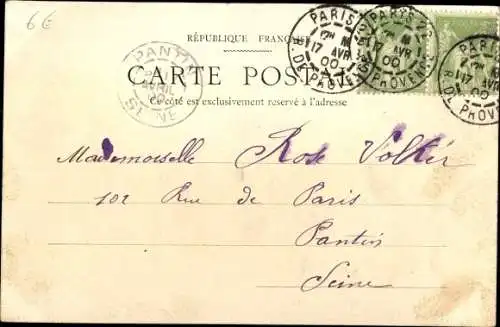 6€
RÉPUBLIQUE FRANÇAISE
CARTE POSTALE
Ce côté est exclusivement réservé à l'adresse
PARIS
17 AVR
00
R. DE PROVENCE
PARIS
AVR
00
PROVENCE
PARIS
17
00
R. DE PROVENCE
PANTIN
AVRIL
00
SEINE
Mademoiselle Rose Volter
102 Rue de Paris
Pantin
Seine